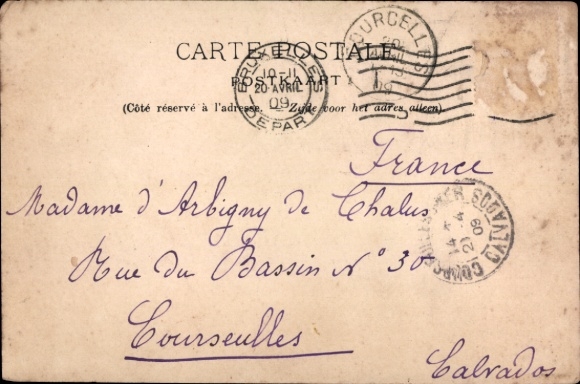 CARTE POSTALE
POSTKAART
(Côté réservé à l'adresse. — Zijde voor het adres alleen).
BRUXELLES
10-11
20 AVRIL
09
DEPART
COURCELLES
09
5
France
Madame d'Arbigny de Chalus
Rue du Bassin N° 30
Courseulles
Calvados
CALVADOS
21 -4
09